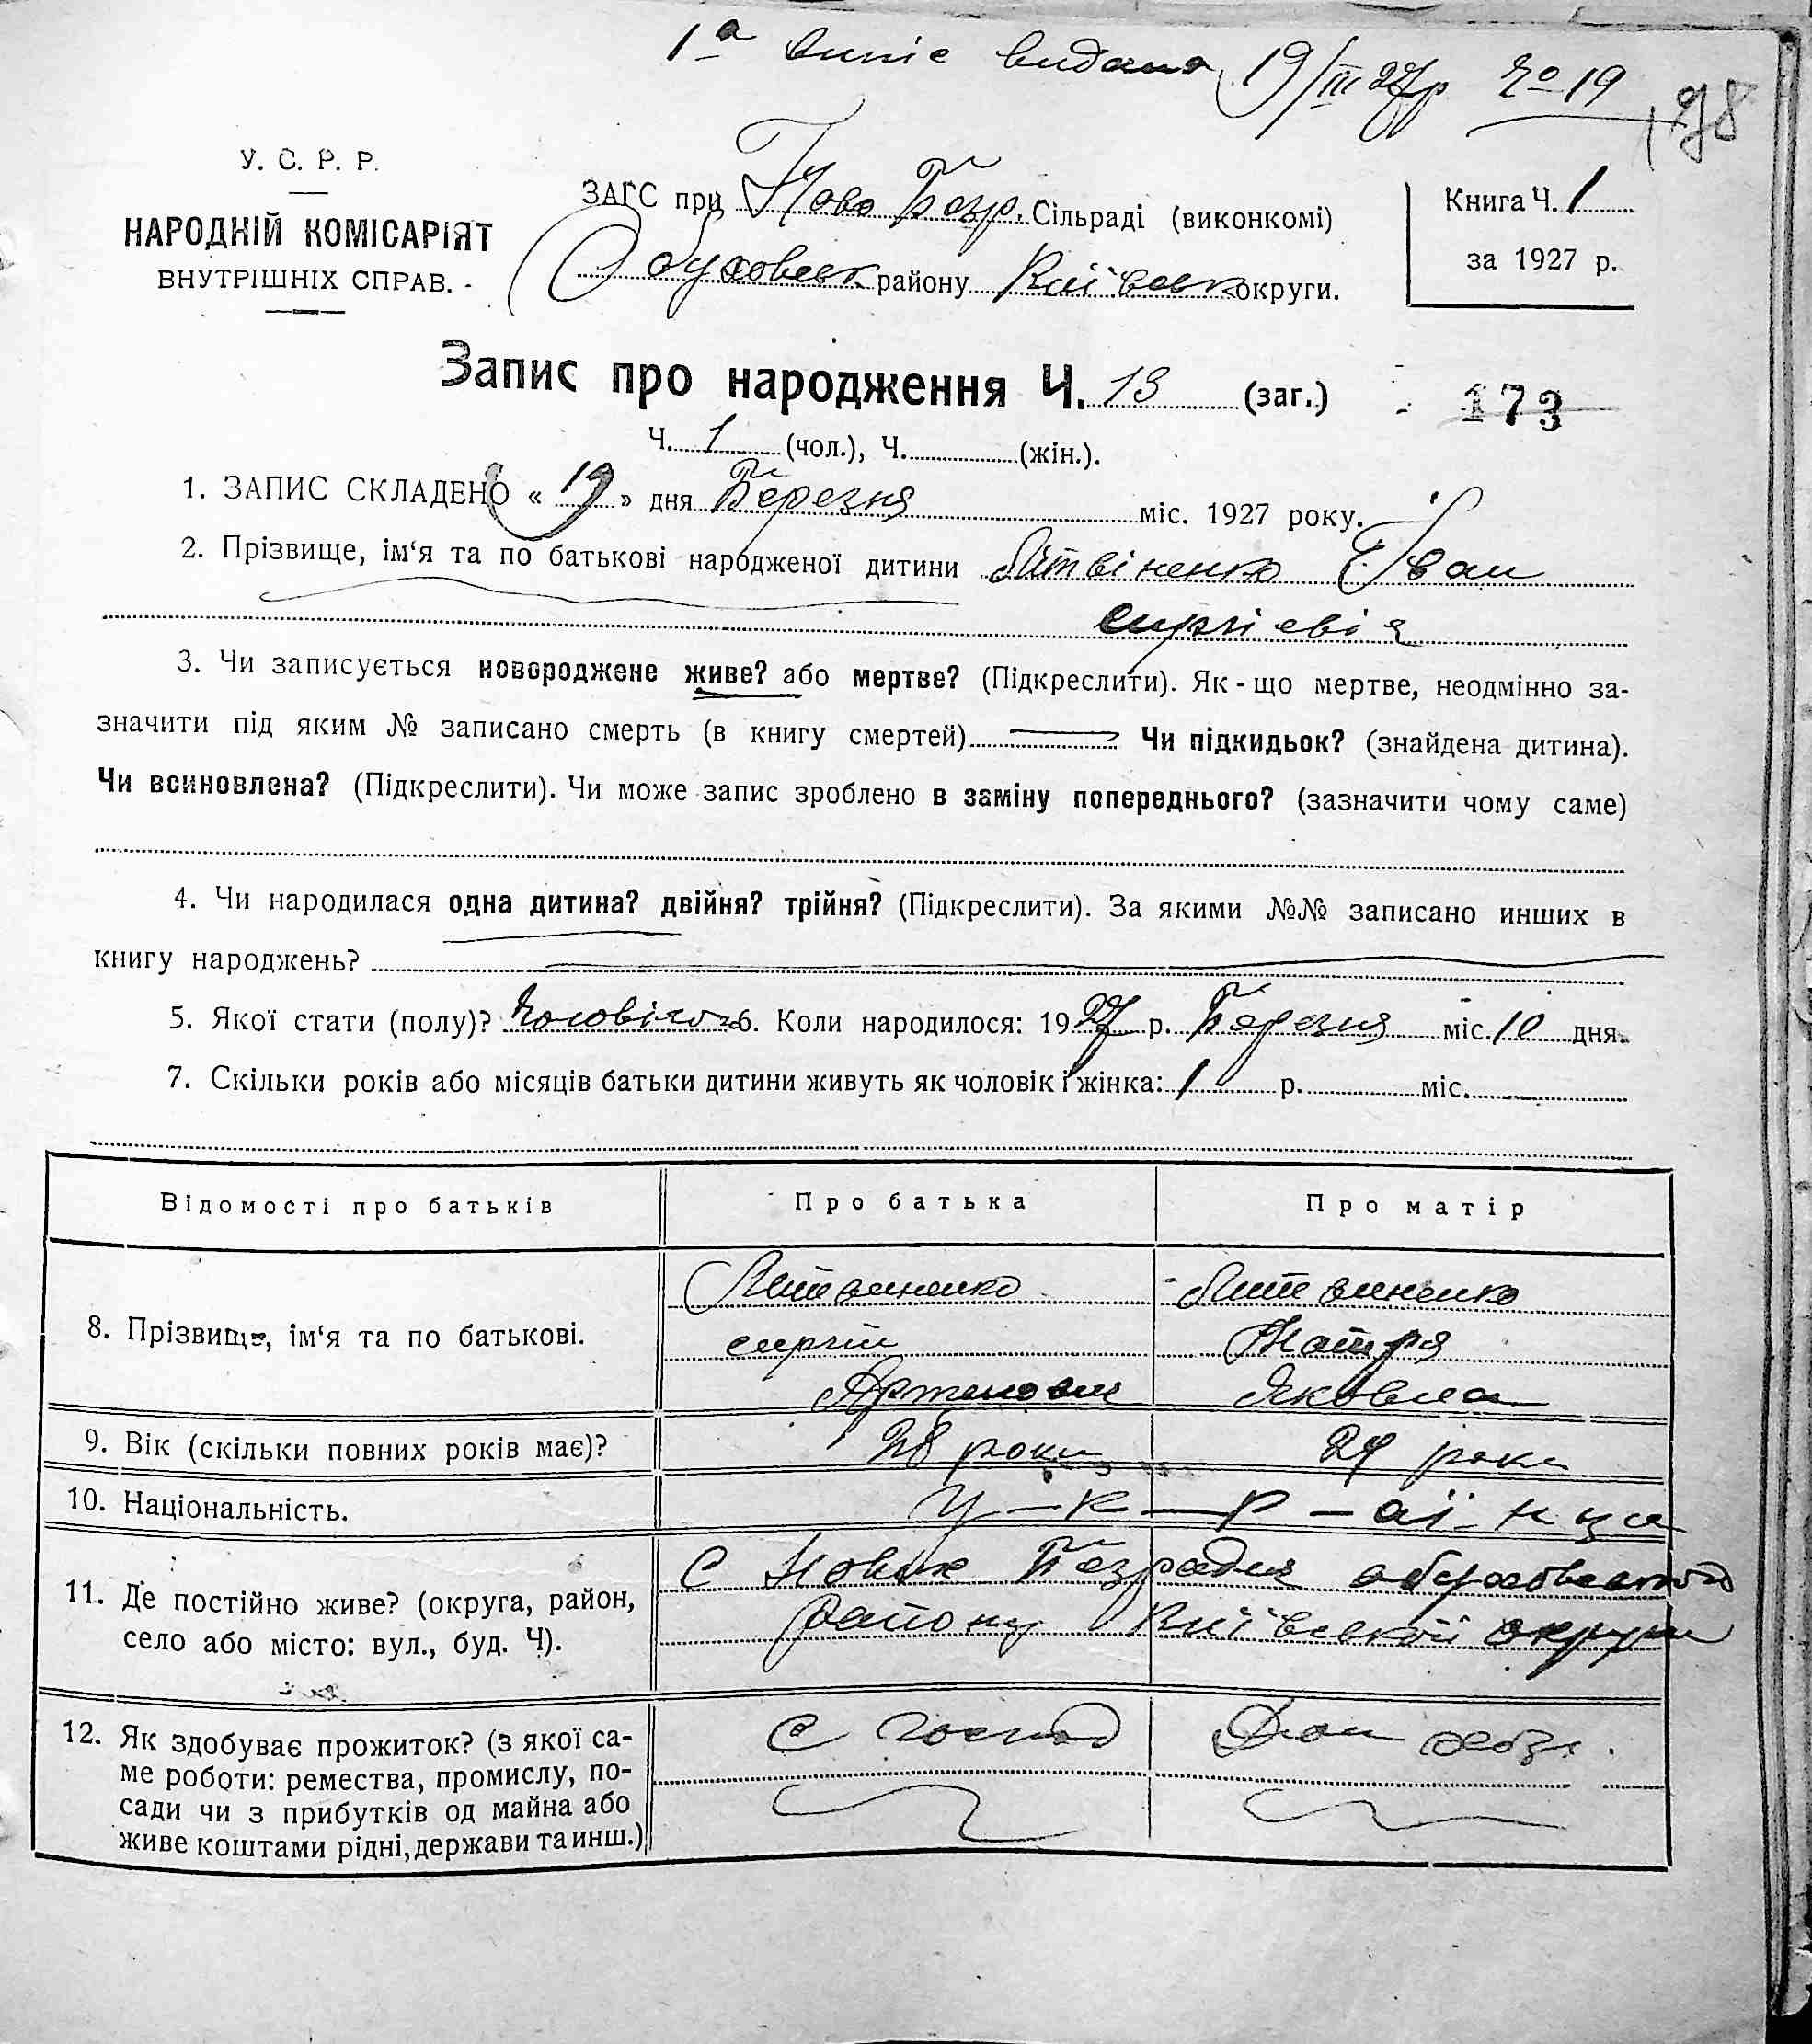 1а випіс видана 19/III 27р № 19
198
У. С. Р. Р.
НАРОДНІЙ КОМІСАРІЯТ
ВНУТРІШНІХ СПРАВ.
ЗАГС при Ново Безр. Сільраді (виконкомі)
Обуховськ району Київськ округи.
Книга Ч. 1
за 1927 р.
Запис про народження Ч. 13 (заг.)
173
Ч. 1 (чол.), Ч. (жін.).
1. ЗАПИС СКЛАДЕНО « 19 » дня Березня міс. 1927 року.
2. Прізвище, ім‘я та по батькові народженої дитини Литвіненко Іван
Сиргієвіч
3. Чи записується новороджене живе? або мертве? (Підкреслити). Як - що мертве, неодмінно за-
значити під яким № записано смерть (в книгу смертей) Чи підкидьок? (знайдена дитина).
Чи всиновлена? (Підкреслити). Чи може запис зроблено в заміну попереднього? (зазначити чому саме)
4. Чи народилася одна дитина? двійня? трійня? (Підкреслити). За якими №№ записано инших в
книгу народжень?
5. Якої стати (полу)? 6. Коли народилося: 1927 р. Березня міс. 10 дня.
7. Скільки років або місяців батьки дитини живуть як чоловік і жінка: 1 р. міс.
Відомості про батьків
Про батька
Про матір
8. Прізвище, ім‘я та по батькові.
Литвиненко
Сиргій
Артемович
Литвиненко
Мотря
Яковла
9. Вік (скільки повних років має)?
28 роки
24 роки
10. Національність.
У - к - р - аї - нци
11. Де постійно живе? (округа, район,
село або місто: вул., буд. Ч).
С Нових Безрадич Обуховського
району Київськой округи
12. Як здобуває прожиток? (з якої са-
ме роботи: ремества, промислу, по-
сади чи з прибутків од майна або
живе коштами рідні, держави та инш.)
С господ
Дом хоз.